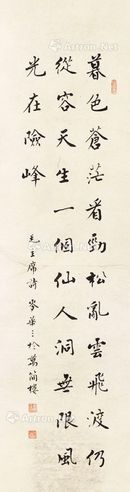 暮色蒼茫看勁松亂雲飛渡仍
從容天生一個仙人洞無限風
光在險峰
毛主席詩 麥華三於萬簡樓